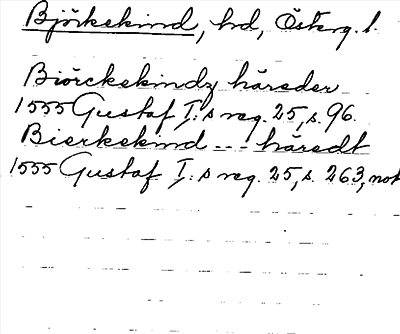 Björkekind, hd, Österg. l.
Biörckekindz häreder
1555 Gustaf I:s reg. 25, s. 96.
Bierkekind --- häredt
1555 Gustaf I:s reg. 25, s. 263, not